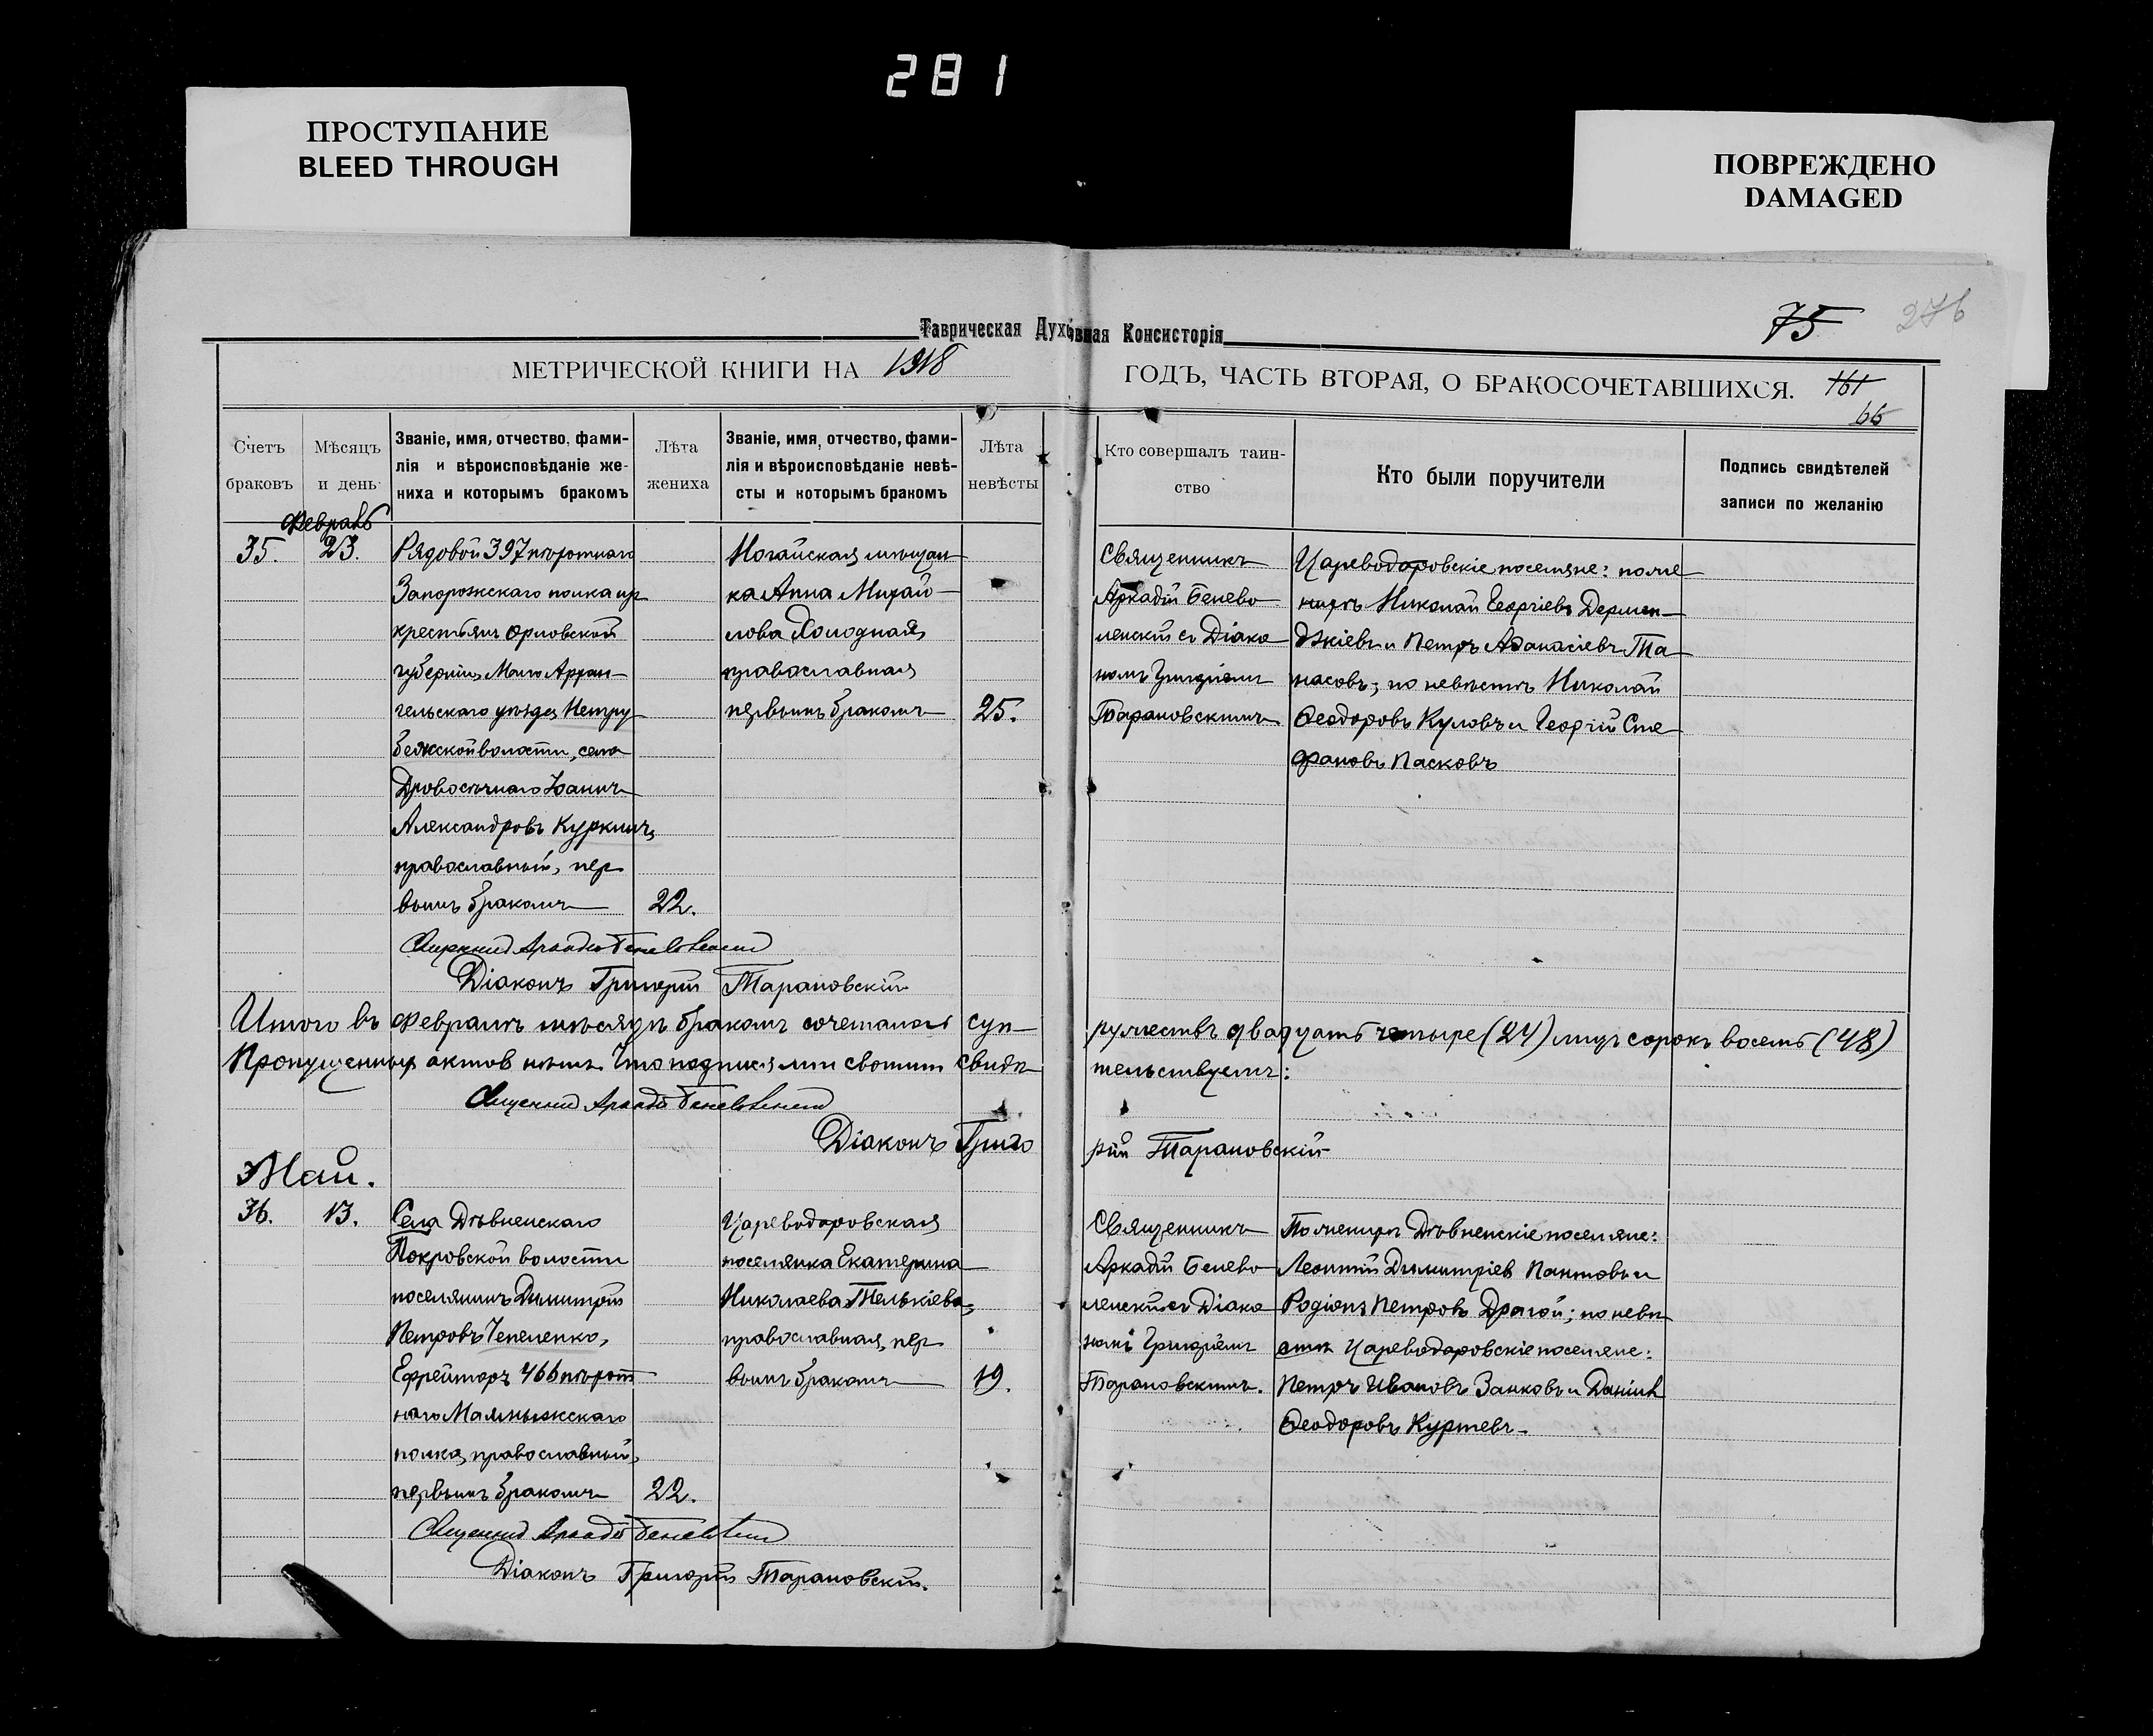 281
ПРОСТУПАНИЕ
BLEED THROUGH
ПОВРЕЖДЕНО
DAMAGED
75 276
Таврическая Духовная Консисторія
МЕТРИЧЕСКОЙ КНИГИ НА 1918 ГОДЪ, ЧАСТЬ ВТОРАЯ, О БРАКОСОЧЕТАВШИХСЯ. 161
66
Счетъ
браковъ
Мѣсяцъ
и день
Званіе, имя, отчество, фами-
лія и вѣроисповѣданіе же-
ниха и которымъ бракомъ
Лѣта
жениха
Званіе, имя, отчество, фами-
лія и вѣроисповѣданіе невѣ-
сты и которымъ бракомъ
Лѣта
невѣсты
Кто совершалъ таин-
ство
Кто были поручители
Подпись свидѣтелей
записи по желанію
Февраль
35. 23.
Рядовой 397 пѣхотнаго
Запорожскаго полка изъ
крестьянъ Орловской
губерніи, Мало Архан-
гельскаго уѣзда,
бежской волости, села
Дровосѣчнаго Іоаннъ
Александровъ Куркинъ,
православный, пер
вымъ бракомъ
22.
Ногайская мѣщан-
ка Анна Михай-
лова Холодная,
православная
первымъ бракомъ
25.
Священникъ
Аркадій Бенево
ленскій съ Діако
номъ Григоріемъ
Тарановскимъ
Цареводаровскіе поселяне: по же
нихѣ Николай Георгіевъ Дермен-
джіевъ и Петръ Аѳанасіевъ Та-
насовъ; по невѣстѣ Николай
Ѳеодоровъ Куловъ и Георгій Сте
фановъ Пасковъ
Священникъ Аркадій Беневоленскій
Діаконъ Григорій Тарановскій
Итого въ Февралѣ мѣсяцѣ бракомъ сочеталось суп-
ружествъ двадцать четыре (24) лицъ сорокъ восемь (48)
Пропущенныхъ актовъ нѣтъ. Что подписями своими свидѣ-
тельствуемъ:
Священникъ Аркадій Беневоленскій
Діаконъ Григо
рій Тарановскій
Май.
36. 13.
Села Дѣвненскаго
Покровской волости
поселянинъ Димитрій
Петровъ Чепеленко,
Ефрейторъ 466 пѣхот
наго Малмыжскаго
полка, православный,
первымъ бракомъ
22.
Цареводаровская
поселянка Екатерина
Николаева Телькіева,
православная, пер
вымъ бракомъ
19.
Священникъ
Аркадій Бенево
ленскій съ Діако
номъ Григоріемъ
Тарановскимъ.
По женихѣ Дѣвненскіе поселяне:
Леонтій Димитріев Пантовъ и
Родіонъ Петровъ Драгой; по невѣ
стѣ Цареводаровскіе поселяне:
Петръ Ивановъ Занковъ и Даніилъ
Ѳеодоровъ Куртевъ.
Священникъ Аркадій Беневоленскій
Діаконъ Григорій Тарановскій.